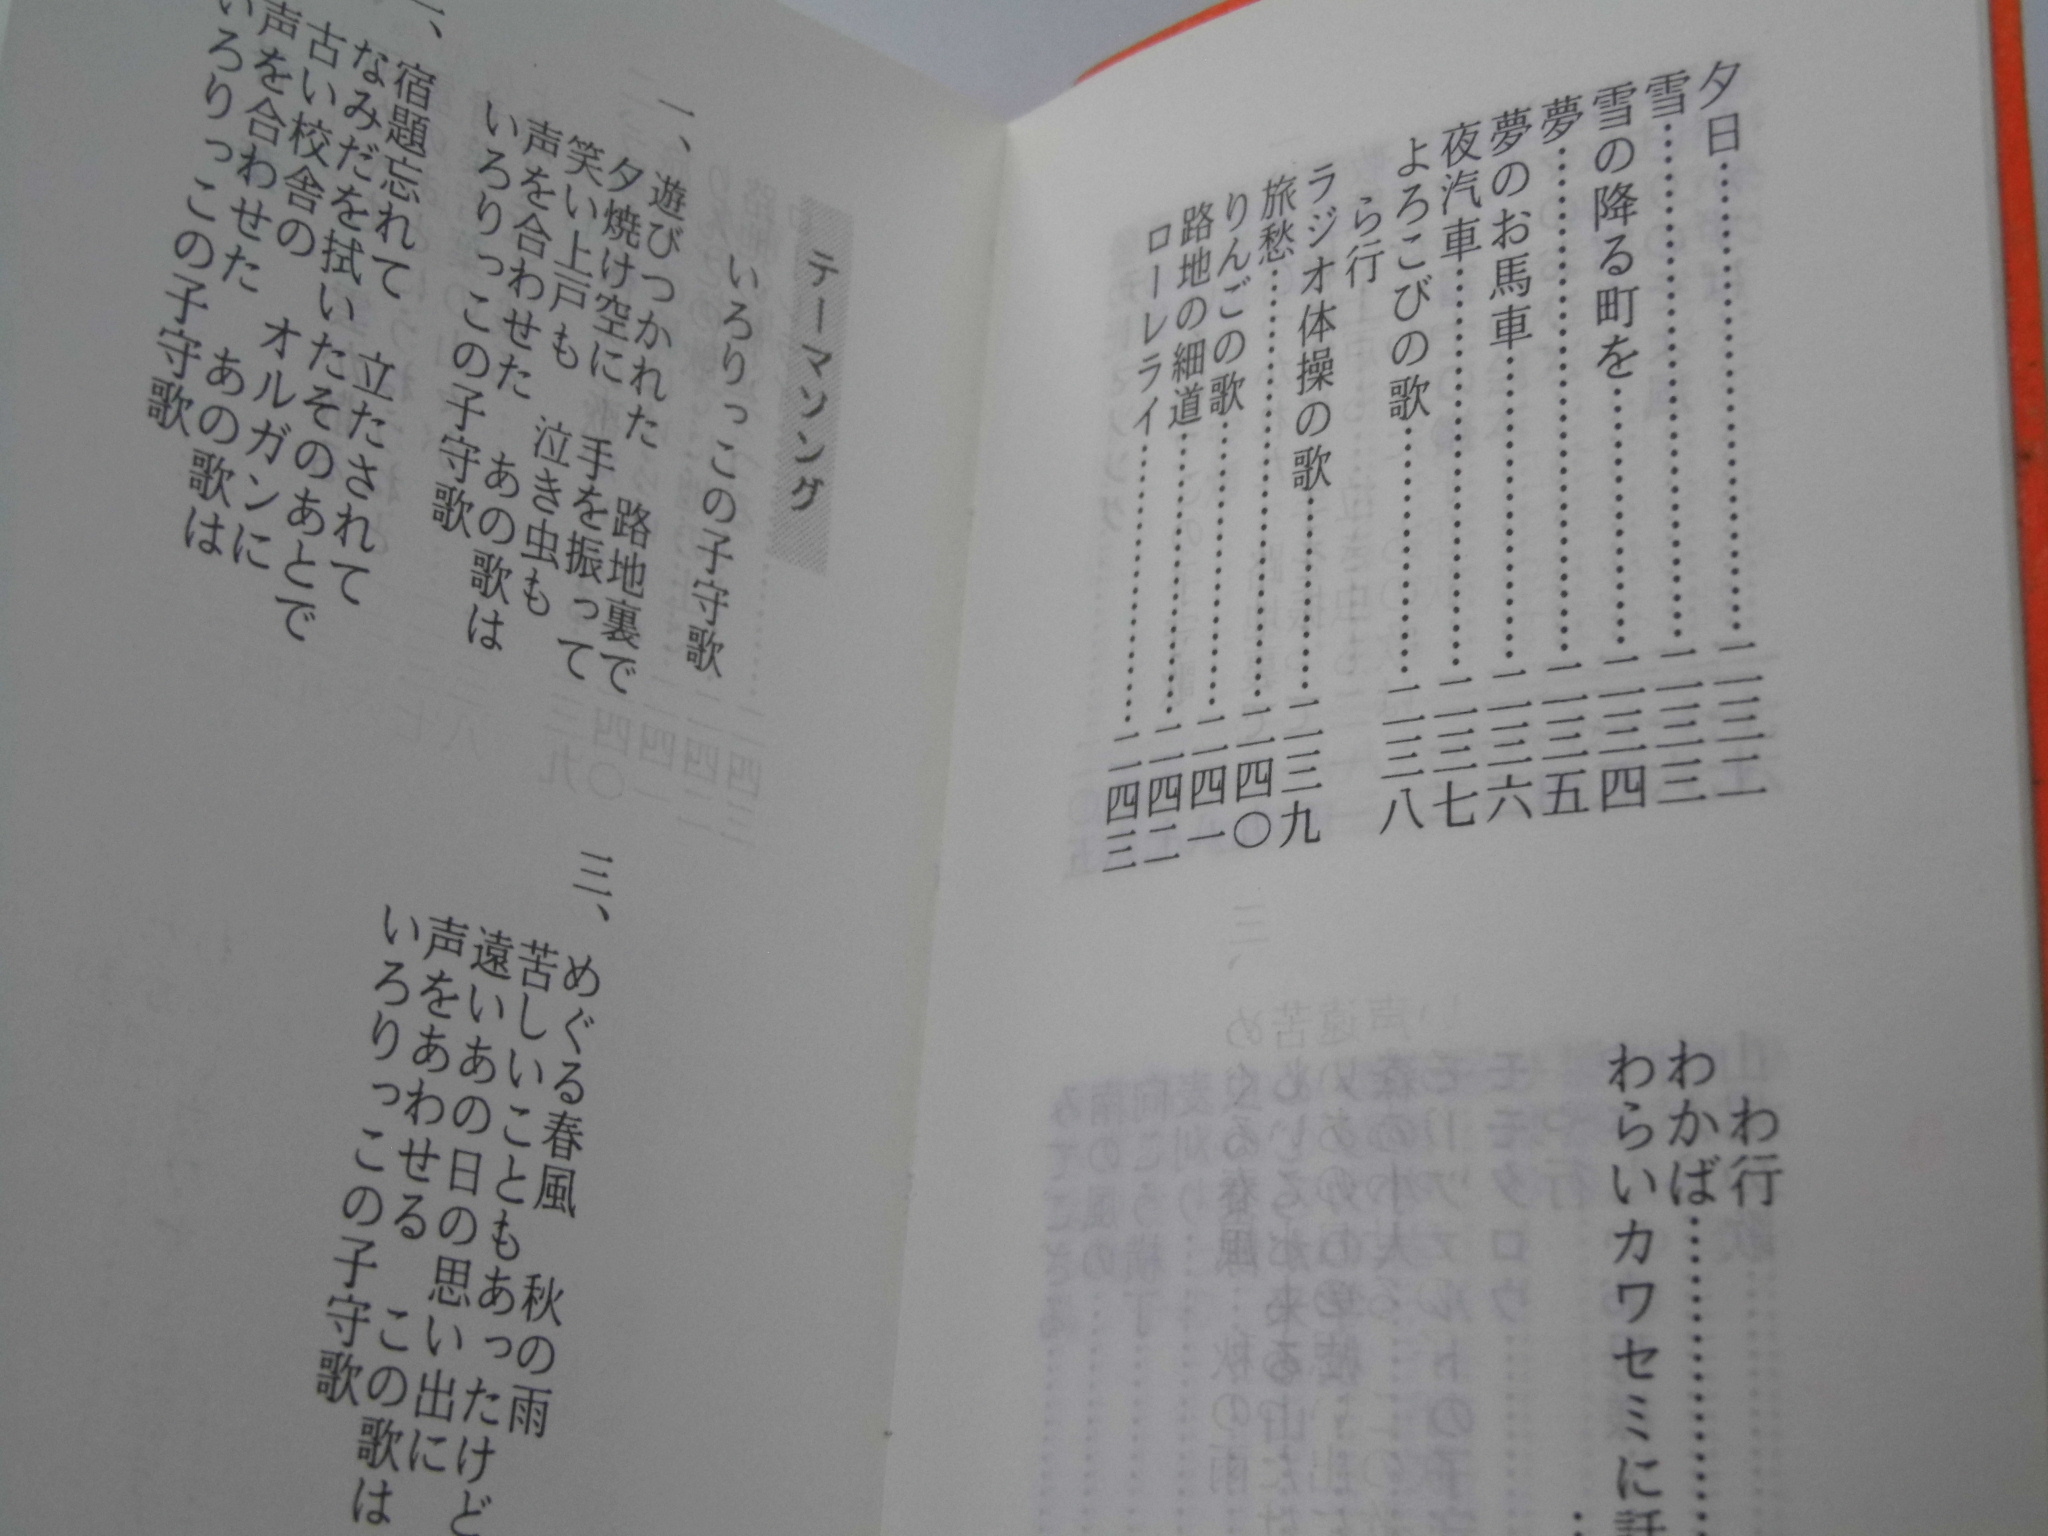 夕日……二三二
雪……二三三
雪の降る町を……二三四
夢……二三五
夢のお馬車……二三六
夜汽車……二三七
よろこびの歌……二三八
ら行
ラジオ体操の歌……二三九
旅愁……二四〇
りんごの歌……二四一
路地の細道……二四二
ローレライ……二四三
わ行
わかば……
わらいカワセミに話
テーマソング
いろりっこの子守歌
一、遊びつかれた　路地裏で
夕焼け空に　手を振って
笑い上戸も　泣き虫も
声を合わせた　あの歌は
いろりっこの子守歌
宿題忘れて　立たされて
なみだを拭いたそのあとで
古い校舎の　オルガンに
声を合わせた　あの歌は
いろりっこの子守歌
三、めぐる春風　秋の雨
苦しいこともあったけど
遠いあの日の思い出に
声をあわせる　この歌は
いろりっこの子守歌